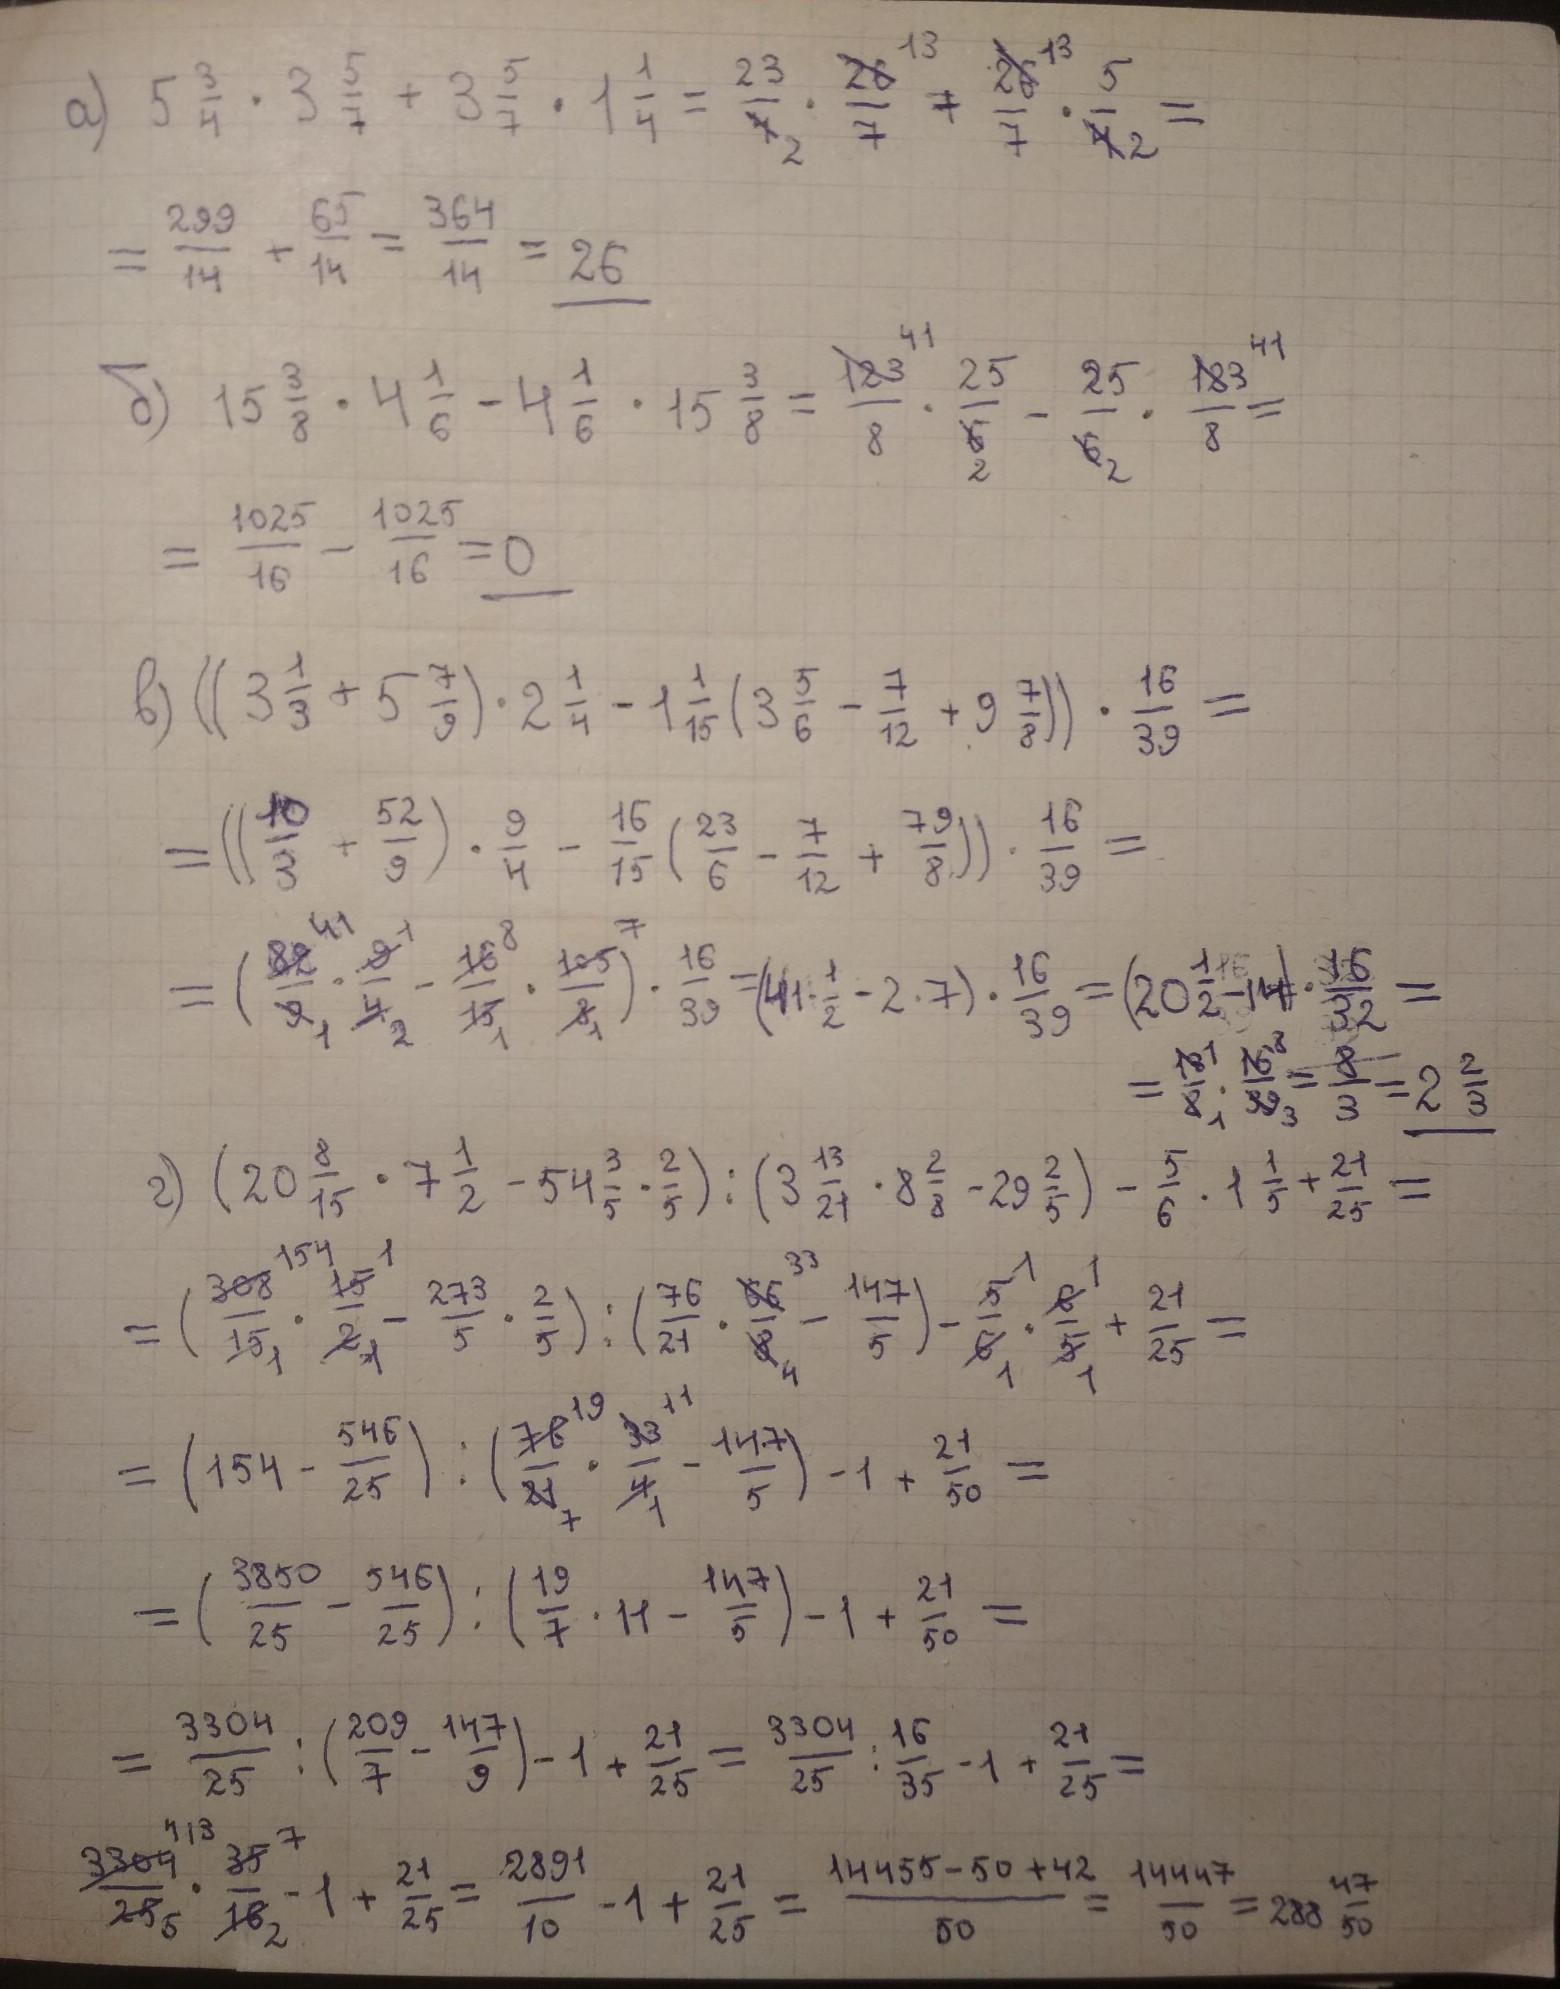 а) 5 3/4 · 3 5/7 + 3 5/7 · 1 1/4 = 23/4 2 · 26/7 13 + 26/7 13 · 5/4 2 =
= 299/14 + 65/14 = 364/14 = 26
б) 15 3/8 · 4 1/6 - 4 1/6 · 15 3/8 = 123/8 41 · 25/6 2 - 25/6 2 · 123/8 41 =
= 1025/16 - 1025/16 = 0
в) ((3 1/3 + 5 7/9) · 2 1/4 - 1 1/15 (3 5/6 - 7/12 + 9 7/8)) · 16/39 =
= ((10/3 + 52/9) · 9/4 - 16/15 (23/6 - 7/12 + 79/8)) · 16/39 =
= (82/9 41 1 · 9/4 1 2 - 16/15 8 1 · 105/8 7 1) · 16/39 = (41 · 1/2 - 2 · 7) · 16/39 = (20 1/2 - 14) · 16/32 =
= 13/2 1 1 · 16/39 8 3 = 8/3 = 2 2/3
г) (20 8/15 · 7 1/2 - 54 3/5 · 2/5) : (3 13/21 · 8 2/8 - 29 2/5) - 5/6 · 1 1/5 + 21/25 =
= (308/15 154 1 · 15/2 1 1 - 273/5 · 2/5) : (76/21 · 66/8 33 4 - 147/5) - 5/6 1 1 · 6/5 1 1 + 21/25 =
= (154 - 546/25) : (76/21 19 7 · 33/4 11 1 - 147/5) - 1 + 21/50 =
= (3850/25 - 546/25) : (19/7 · 11 - 147/5) - 1 + 21/50 =
= 3304/25 : (209/7 - 147/9) - 1 + 21/25 = 3304/25 : 16/35 - 1 + 21/25 =
3304/25 413 5 · 35/16 7 2 - 1 + 21/25 = 2891/10 - 1 + 21/25 = 14455 - 50 + 42/50 = 14447/50 = 288 47/50